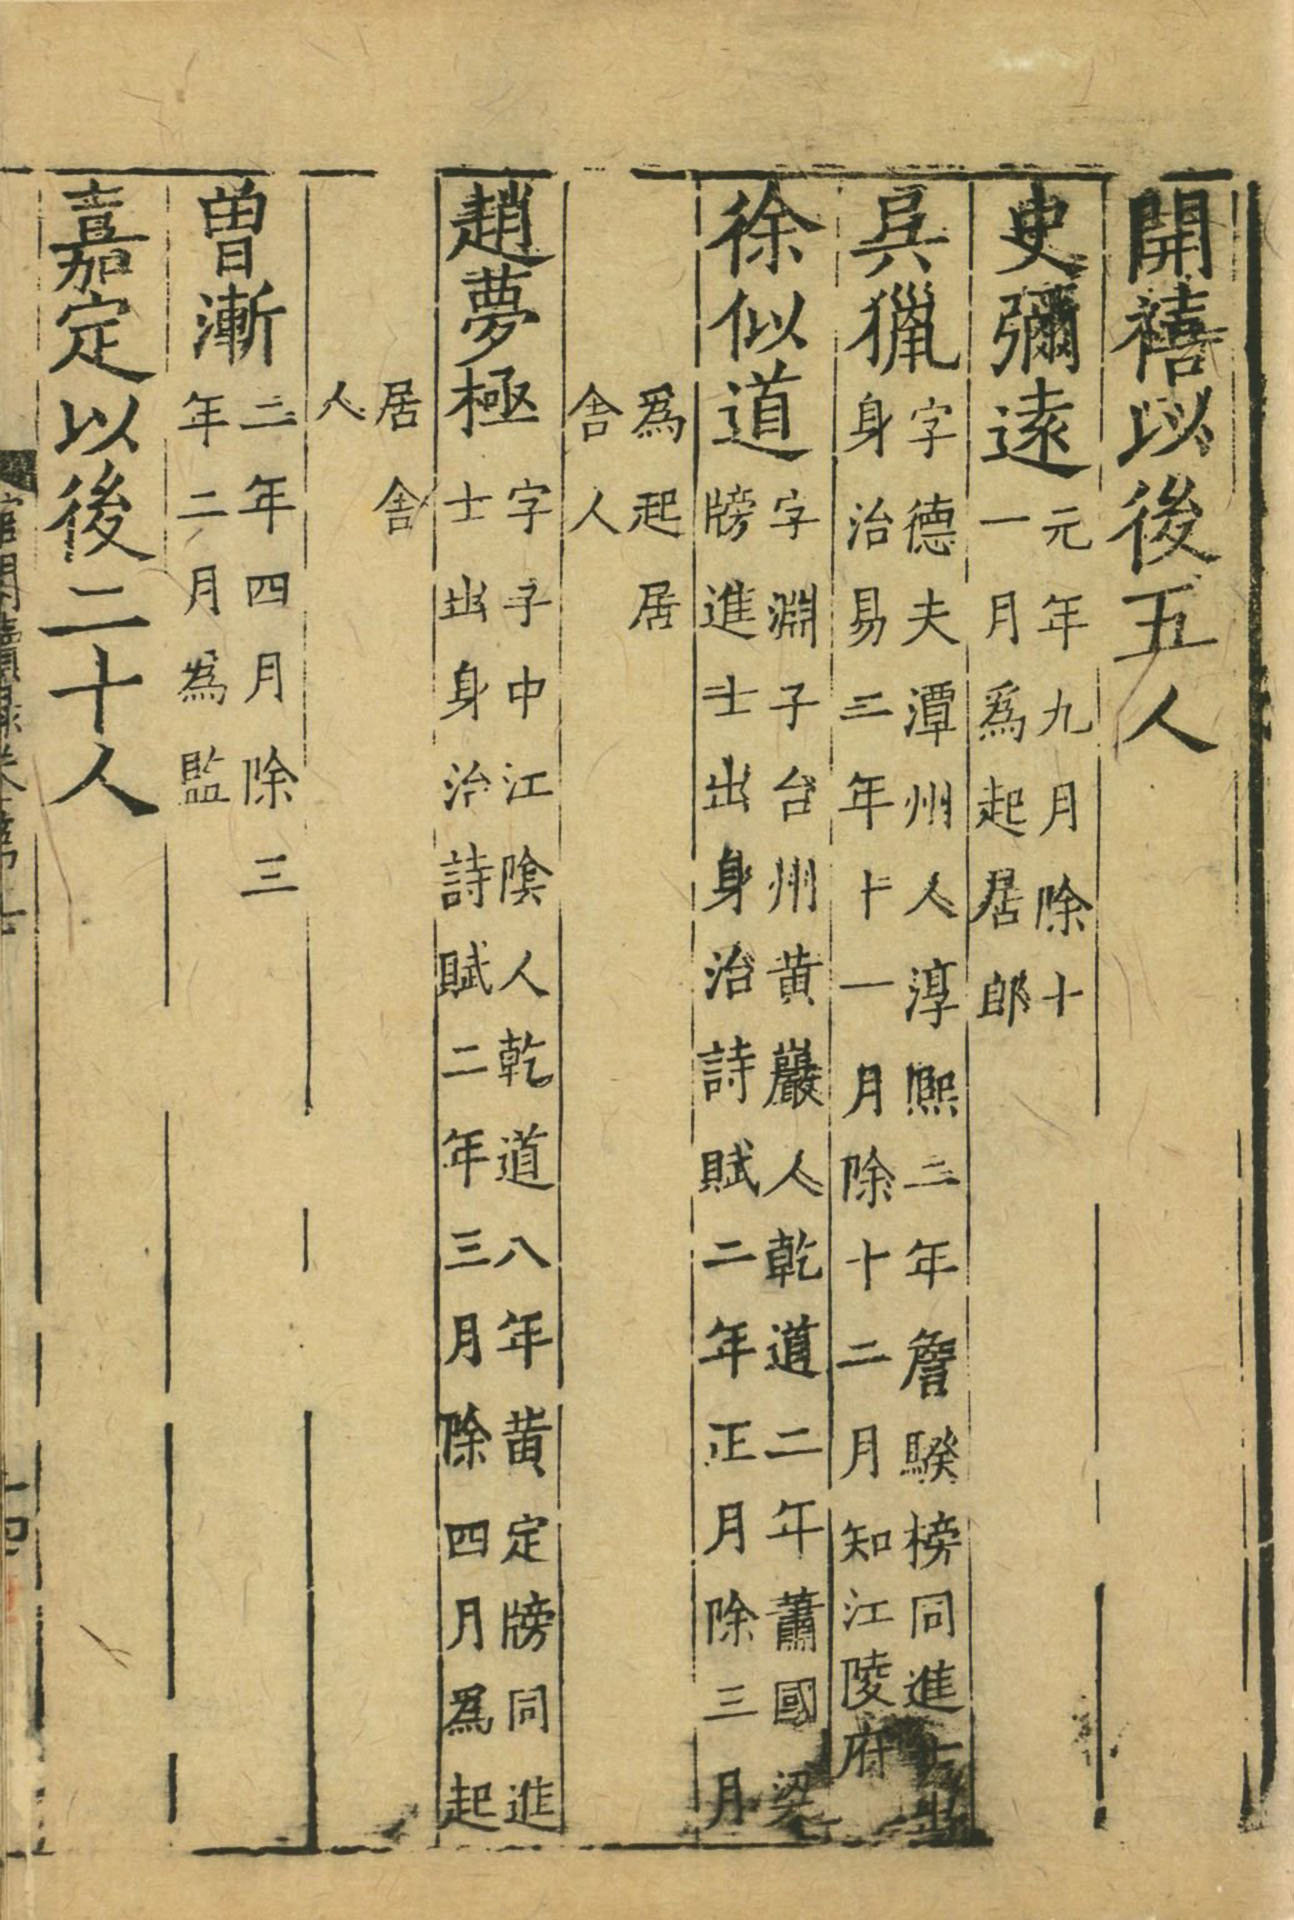 開禧以後五人
史彌遠元年九月除十
一月爲起居郎
吳獵字德夫潭州人淳熈二年詹騤榜同進士出
身治易二年十一月除十二月知江陵府
徐似道字淵子台州黄巖人乾道二年蕭國梁
牓進士出身治詩賦二年正月除三月
爲起居
舎人
趙夢極字子中江陰人乾道八年黄定牓同進
士出身治詩賦二年三月除四月爲起
居舎
人
曽漸二年四月除三
年二月為監
嘉定以後二十人